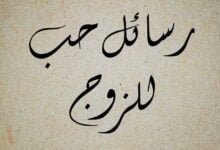 رسائل حب
للزوج